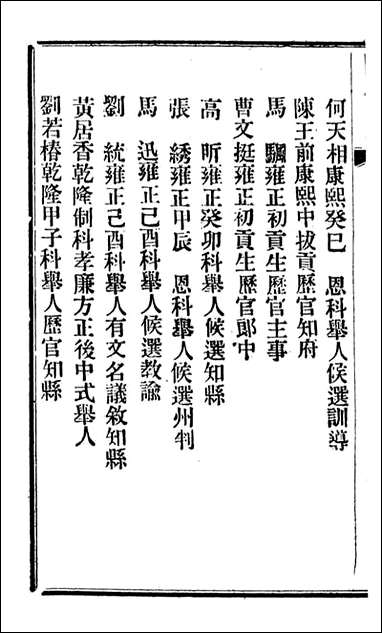 何天相康熙癸巳　恩科舉人候選訓導
陳王前康熙中拔貢歷官知府
馬　驌雍正初貢生歷官主事
曹文挺雍正初貢生歷官郎中
高　昕雍正癸卯科舉人候選知縣
張　綉雍正甲辰　恩科舉人候選州判
馬　迅雍正己酉科舉人候選教諭
劉　統雍正己酉科舉人有文名議敘知縣
黃居香乾隆制科孝廉方正後中式舉人
劉若椿乾隆甲子科舉人歷官知縣